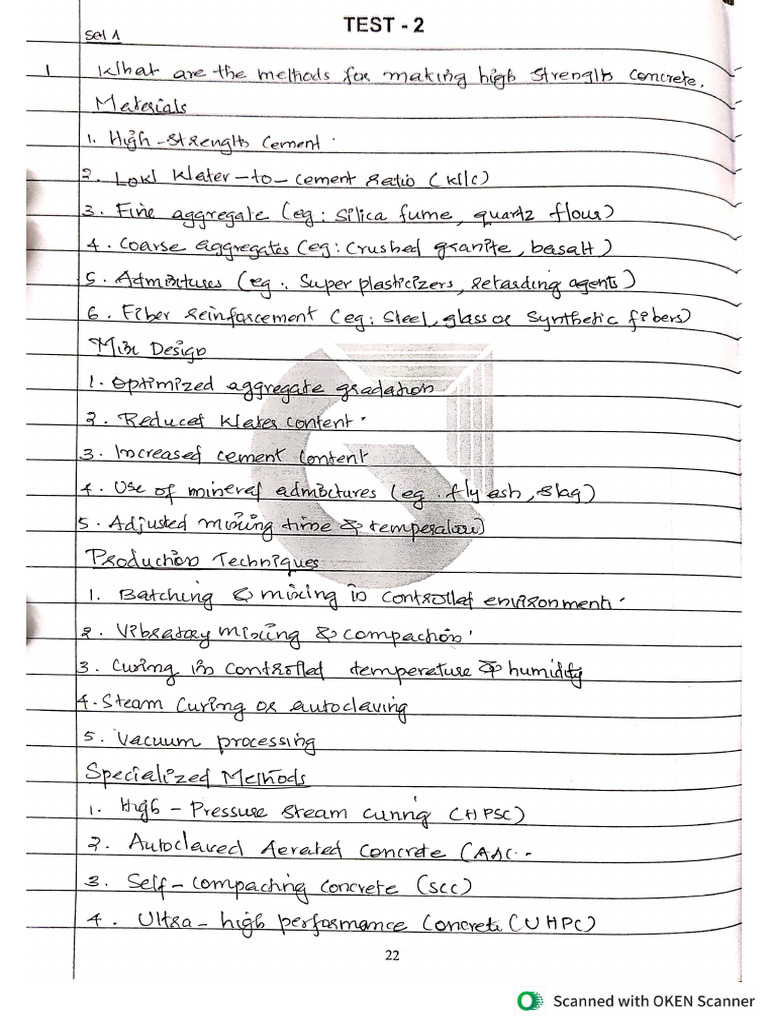 TEST - 2
Set 1
1 What are the methods for making high strength concrete.
Materials
1. High-strength cement.
2. Low Water-to-cement ratio (W/C)
3. Fine aggregate (eg: silica fume, quartz flour)
4. Coarse aggregates (eg: crushed granite, basalt)
5. Admixtures (eg. Super plasticizers, retarding agents)
6. Fiber reinforcement (eg: steel, glass or synthetic fibers)
Mix Design
1. Optimized aggregate gradation
2. Reduced Water content.
3. Increased cement content
4. Use of mineral admixtures (eg. fly ash, slag)
5. Adjusted mixing time & temperature)
Production Techniques
1. Batching & mixing in controlled environment.
2. Vibratory mixing & compaction.
3. Curing in controlled temperature & humidity
4. Steam curing or autoclaving
5. Vacuum processing
Specialized Methods
1. High - Pressure steam curing (HPSC)
2. Autoclaved Aerated concrete (AAC..
3. Self-compacting concrete (SCC)
4. Ultra-high performance concrete (UHPC)
22
Scanned with OKEN Scanner